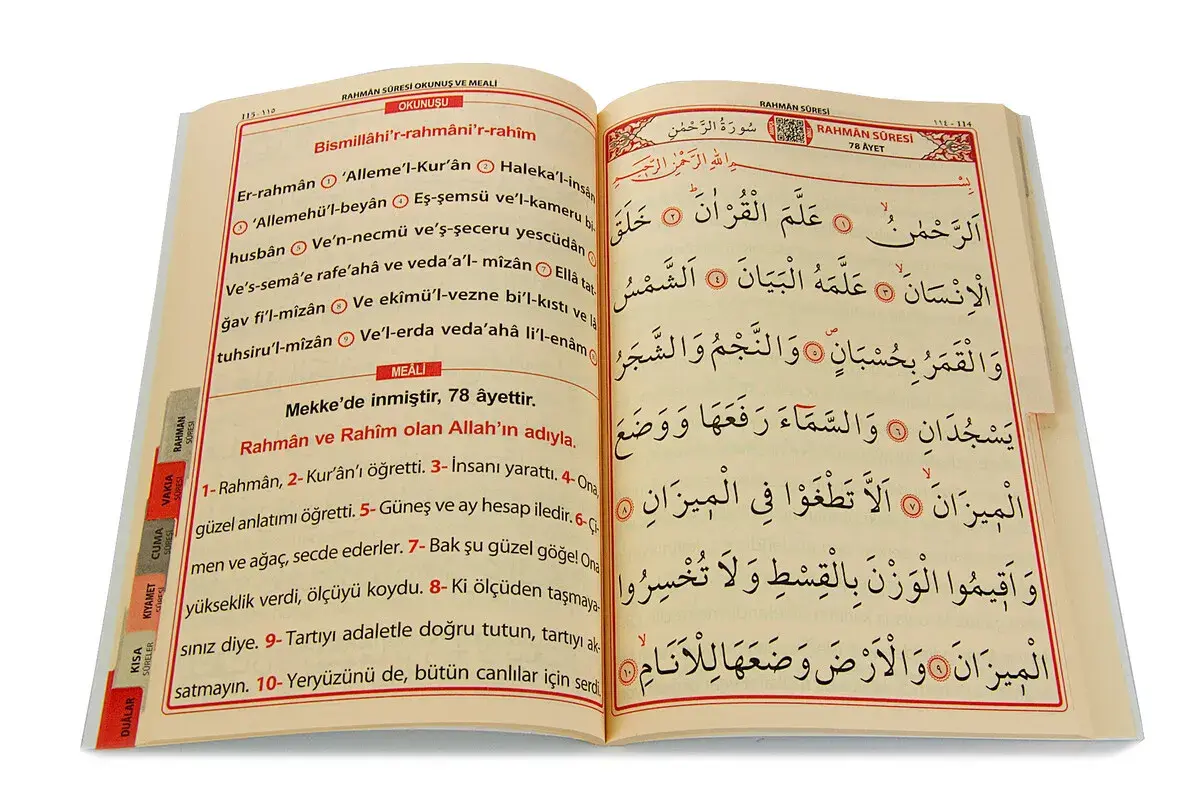 RAHMÂN SÛRESİ OKUNUŞ VE MEALİ
115 - ١١٥
OKUNUŞU
Bismillâhi’r-rahmâni’r-rahîm
Er-rahmân 1 ‘Alleme’l-Kur’ân 2 Haleka’l-insân
3 ‘Allemehü’l-beyân 4 Eş-şemsü ve’l-kameru bi-
husbân 5 Ve’n-necmü ve’ş-şeceru yescüdân
Ve’s-semâ’e rafe’ahâ ve veda’a’l- mîzân 7 Ellâ tat-
ğav fi’l-mîzân 8 Ve ekîmü’l-vezne bi’l-kıstı ve lâ
tuhsiru’l-mîzân 9 Ve’l-erda veda’ahâ li’l-enâm
MEÂLİ
Mekke’de inmiştir, 78 âyettir.
Rahmân ve Rahîm olan Allah’ın adıyla.
1- Rahmân, 2- Kur’ân’ı öğretti. 3- İnsanı yarattı. 4- Ona
güzel anlatımı öğretti. 5- Güneş ve ay hesap iledir. 6- Çi-
men ve ağaç, secde ederler. 7- Bak şu güzel göğe! Ona
yükseklik verdi, ölçüyü koydu. 8- Ki ölçüden taşmaya-
sınız diye. 9- Tartıyı adaletle doğru tutun, tartıyı ak-
satmayın. 10- Yeryüzünü de, bütün canlılar için serdi.
RAHMAN SÛRESİ
VAKIA SÛRESİ
CUMA SÛRESİ
KIYAMET SÛRESİ
KISA SÛRELER
DUÂLAR
RAHMÂN SÛRESİ
١١٤ - 114
سُورَةُ الرَّحْمٰنِ
RAHMÂN SÛRESİ
78 ÂYET
بِسْمِ اللّٰهِ الرَّحْمٰنِ الرَّحِيمِ
اَلرَّحْمٰنُۙ ١ عَلَّمَ الْقُرْاٰنَۜ ٢ خَلَقَ
الْاِنْسَانَۙ ٣ عَلَّمَهُ الْبَيَانَ ٤ اَلشَّمْسُ
وَالْقَمَرُ بِحُسْبَانٍۖ ٥ وَالنَّجْمُ وَالشَّجَرُ
يَسْجُدَانِ ٦ وَالسَّمَٓاءَ رَفَعَهَا وَوَضَعَ
الْم۪يزَانَۙ ٧ اَلَّا تَطْغَوْا فِي الْم۪يزَانِ ٨
وَاَق۪يمُوا الْوَزْنَ بِالْقِسْطِ وَلَا تُخْسِرُوا
الْم۪يزَانَ ٩ وَالْاَرْضَ وَضَعَهَا لِلْاَنَامِۙ ١٠